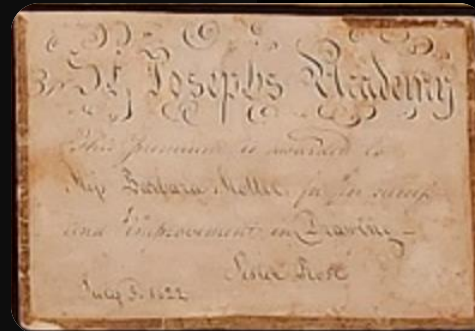 St, Josephs Academy
This premium is awarded to
Miss Barbara Motter for
and improvement in Drawing —
Sister Rose
July 5. 1822